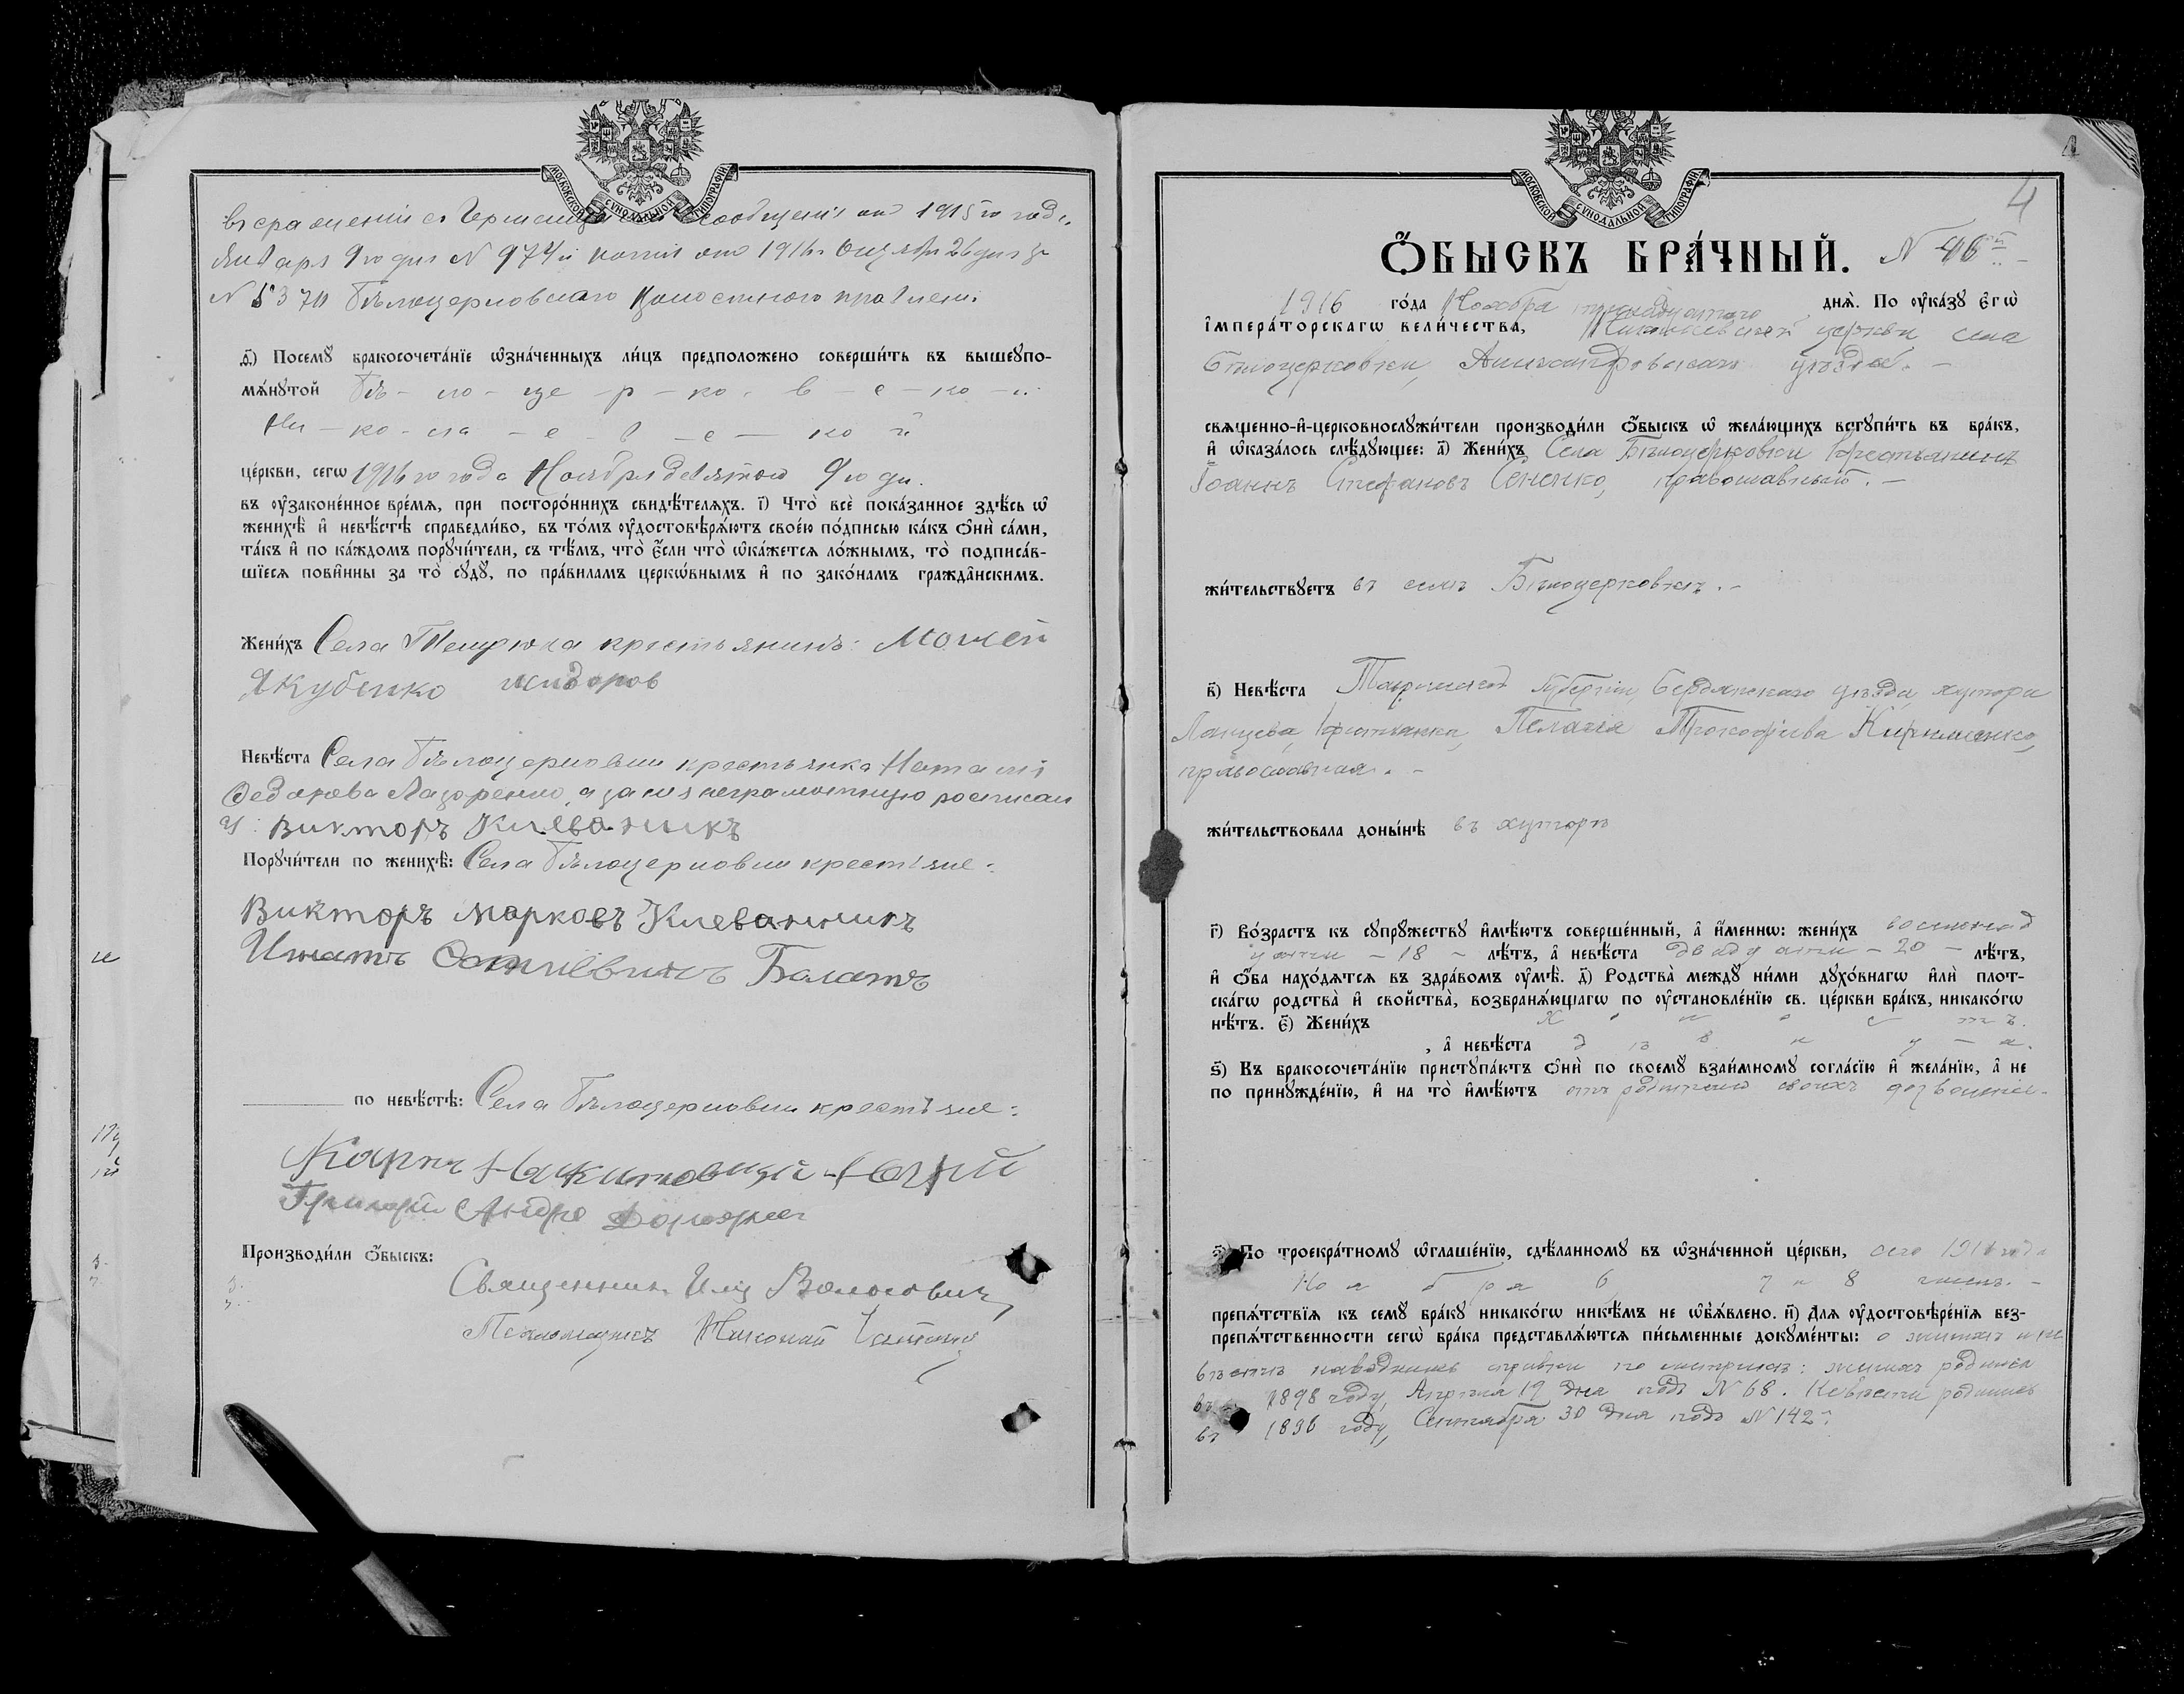 МОСКОВСКОЙ СѴНОДАЛЬНОЙ ТИПОГРАФІИ
въ сраженіи съ сообщенія отъ 1915го года
Января 9го дня № 974й копія отъ 1916 26 дня за
№ 5370 Бѣлоцерковскаго Волостного правленія
д҃) Посемꙋ бракосочета́нїе ѡ҆зна́ченныхъ ли́цъ предположено соверши́ть въ вышеꙋпо-
мѧ́нꙋтой Бѣ – ло – це – р – ко – в – с – ко – й
Ни – ко – ла – е – в – с – ко й
це́ркви, сегѡ 1916го года Ноября девятого 9го дня
въ ᲂу҆законе́нное вре́мѧ, при посторо́ннихъ свидѣ́телѧхъ. і҃) Что̀ всѐ пока́занное здѣ́сь ѡ҆
женихѣ̀ и҆ невѣ́стѣ справедли́во, въ то́мъ ᲂу҆достовѣрѧ́ютъ свое́ю по́дписью ка́къ ѻ҆нѝ са́ми,
та́къ и҆ по ка́ждомъ порꙋчи́тели, съ тѣ́мъ, что̀ є҆́сли что̀ ѡ҆ка́жетсѧ ло́жнымъ, то̀ подписа́в-
шїесѧ пови́нны за то̀ сꙋдꙋ̀, по пра́виламъ церко́внымъ и҆ по зако́намъ гражда́нскимъ.
Жени́хъ Села Темрюка крестьянинъ: Моисей
Якубенко Исидоров
Невѣ́ста Села Бѣлоцерковки крестьянка Наталія
Федорова Лазоренко, а за неё неграмотную росписал
Викторъ Клеванникъ
Порꙋчи́тели по женихѣ̀: Села Бѣлоцерковки крестьяне:
Викторъ Марковъ Клеванникъ
Игнатъ Балатъ
по невѣ́стѣ: Села Бѣлоцерковки крестьяне:
Карпъ
Григорій Андре
Производи́ли ѻ҆́быскъ:
Священникъ Илія Волосовичъ
Псаломщикъ Николай
МОСКОВСКОЙ СѴНОДАЛЬНОЙ ТИПОГРАФІИ
4
Ѻ҆́БЫСКЪ БРА́ЧНЫЙ. № 46й
1916 го́да Ноября тринадцатаго днѧ̀. По ᲂу҆ка́зꙋ є҆гѡ̀
і҆мпера́торскагѡ вели́чества, Николаевской церкви села
Бѣлоцерковки, Александровскаго уѣзда. –
свѧщенно-и҆-церковнослꙋжи́тели производи́ли ѻ҆́быскъ ѡ҆ жела́ющихъ встꙋпи́ть въ бра́къ,
и҆ ѡ҆каза́лось слѣ́дꙋющее: а҃) Жени́хъ Села Бѣлоцерковки крестьянинъ
Іоаннъ Стефановъ православный. –
жи́тельствꙋетъ въ селѣ Бѣлоцерковкѣ. –
в҃) Невѣ́ста Таврической губерніи, Бердянскаго уѣзда, хутора
крестьянка, Пелагія Прокофіева Кириленко,
православная. –
жи́тельствовала доны́нѣ въ хуторѣ
г҃) Во́зрастъ къ сꙋпрꙋ́жествꙋ и҆мѣ́ютъ соверше́нный, а҆ и҆́меннѡ: жени́хъ восемнад
цати – 18 – лѣ́тъ, а҆ невѣ́ста двадцати – 20 – лѣ́тъ,
и҆ ѻ҆́ба нахо́дѧтсѧ въ здра́вомъ ᲂу҆мѣ̀. д҃) Родства̀ междꙋ̀ ни́ми дꙋхо́внагѡ и҆лѝ плот-
ска́гѡ родства̀ и҆ сво́йства̀, возбранѧ́ющагѡ по ᲂу҆становле́нїю св. це́ркви бра́къ, никако́гѡ
нѣ́тъ. є҃) Жени́хъ х о л о с т ъ.
, а҆ невѣ́ста д ѣ в и ц – а.
ѕ҃) Къ бракосочета́нїю пристꙋпа́ютъ ѻ҆нѝ по своемꙋ̀ взаи́мномꙋ согла́сїю и҆ жела́нїю, а҆ не
по принꙋжде́нїю, и҆ на то̀ и҆мѣ́ютъ отъ родителей своихъ дозволеніе.
з҃) По троекра́тномꙋ ѡ҆глаше́нїю, сдѣ́ланномꙋ въ ѡ҆зна́ченной це́ркви, сего 1916 года
Но я б р я 6 7 и 8 чиселъ. –
препѧ́тствїѧ къ семꙋ̀ бра́кꙋ никако́гѡ никѣ́мъ не ѡ҆б̾ѧ́влено. и҃) Длѧ ᲂу҆достовѣре́нїѧ без-
препѧ́тственности сегѡ̀ бра́ка представлѧ́ютсѧ пи́сьменные докꙋме́нты: о женихѣ и не
вѣстѣ справки по метрикѣ: женихъ родился
въ 1898 году, Апрѣля 19 дня подъ № 68. Невѣста родилась
въ 1896 году, Сентября 30 дня подъ № 142й